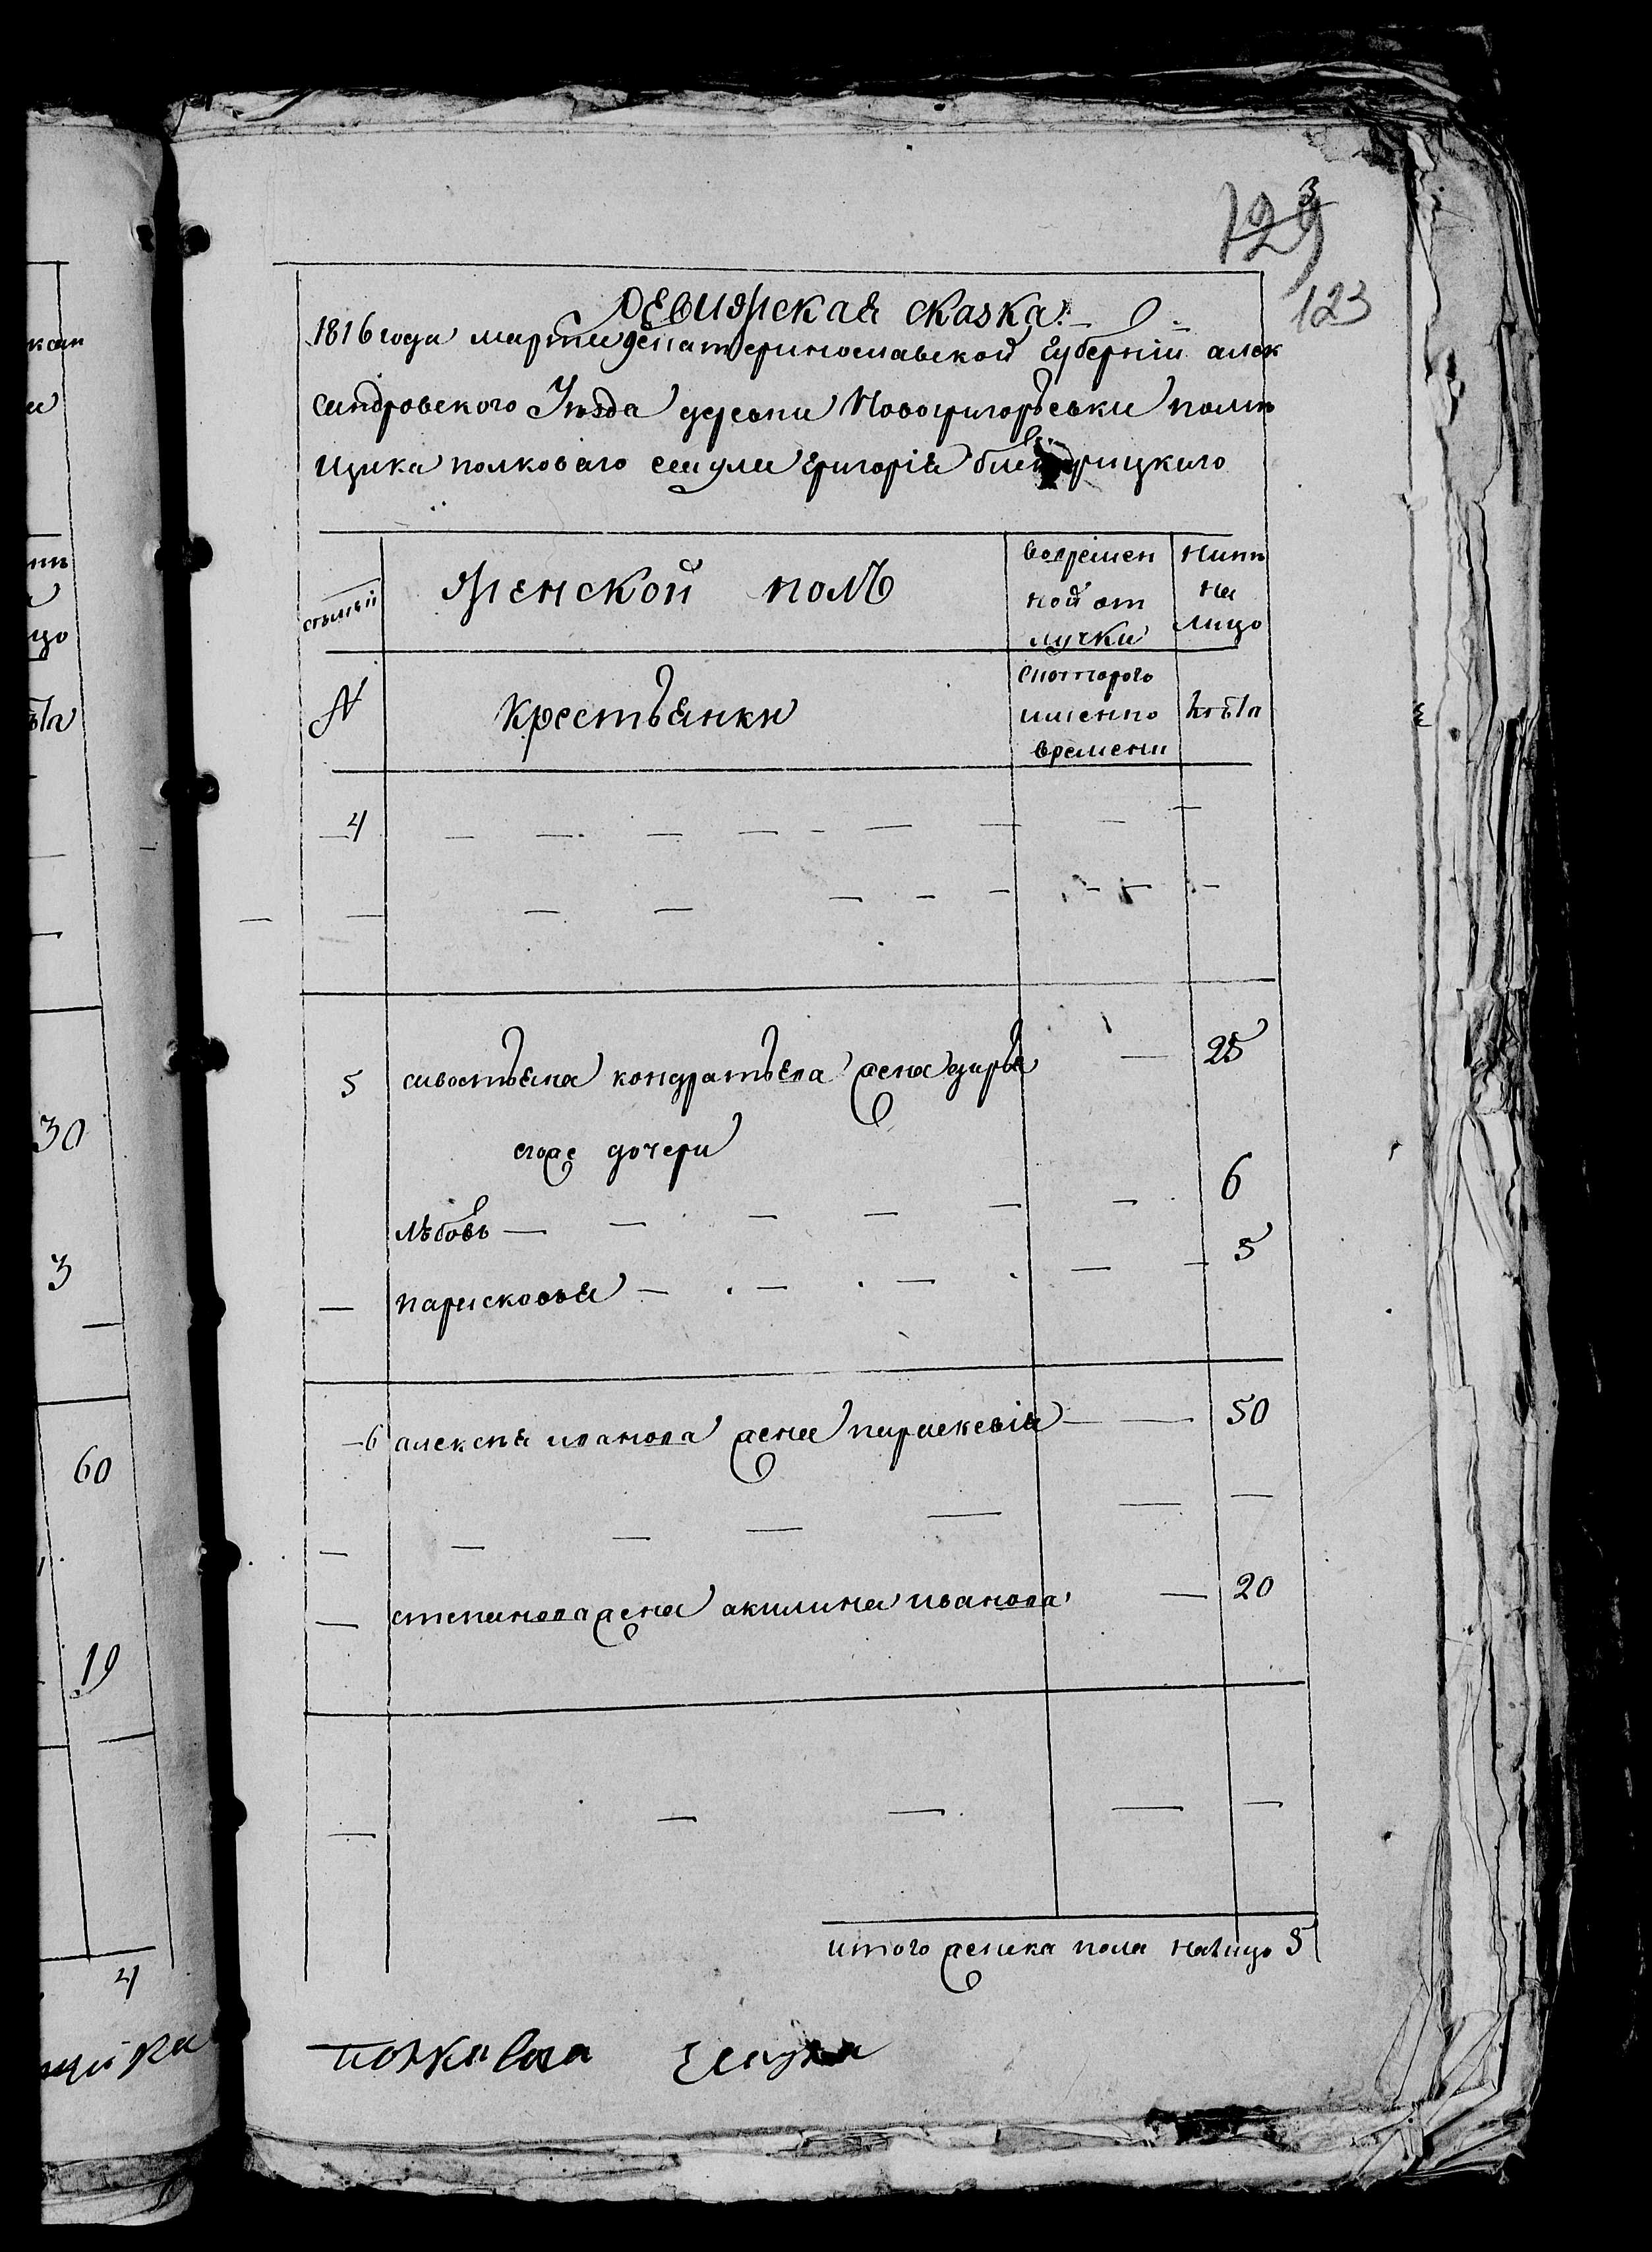 123
ревижская сказка
1816 года марта дня екатеринославской губернии алек
сандровского Уезда деревни Новогригорьевки поме
щика полковаго есаула григория
семьи
женской полъ
вовремен
ной от
лучки
Ныне
на
лицо
N
крестьянки
с которого
именно
времени
лѣта
4
5 сивостьяна кондратьева жена дарья 25
егоже дочери
любовь 6
парасковья 5
6 алексѣя иванова жена параскевия 50
степанова жена акилина иванова 20
итого женска пола налицо 5
есаула
кат
30
3
60
19
4